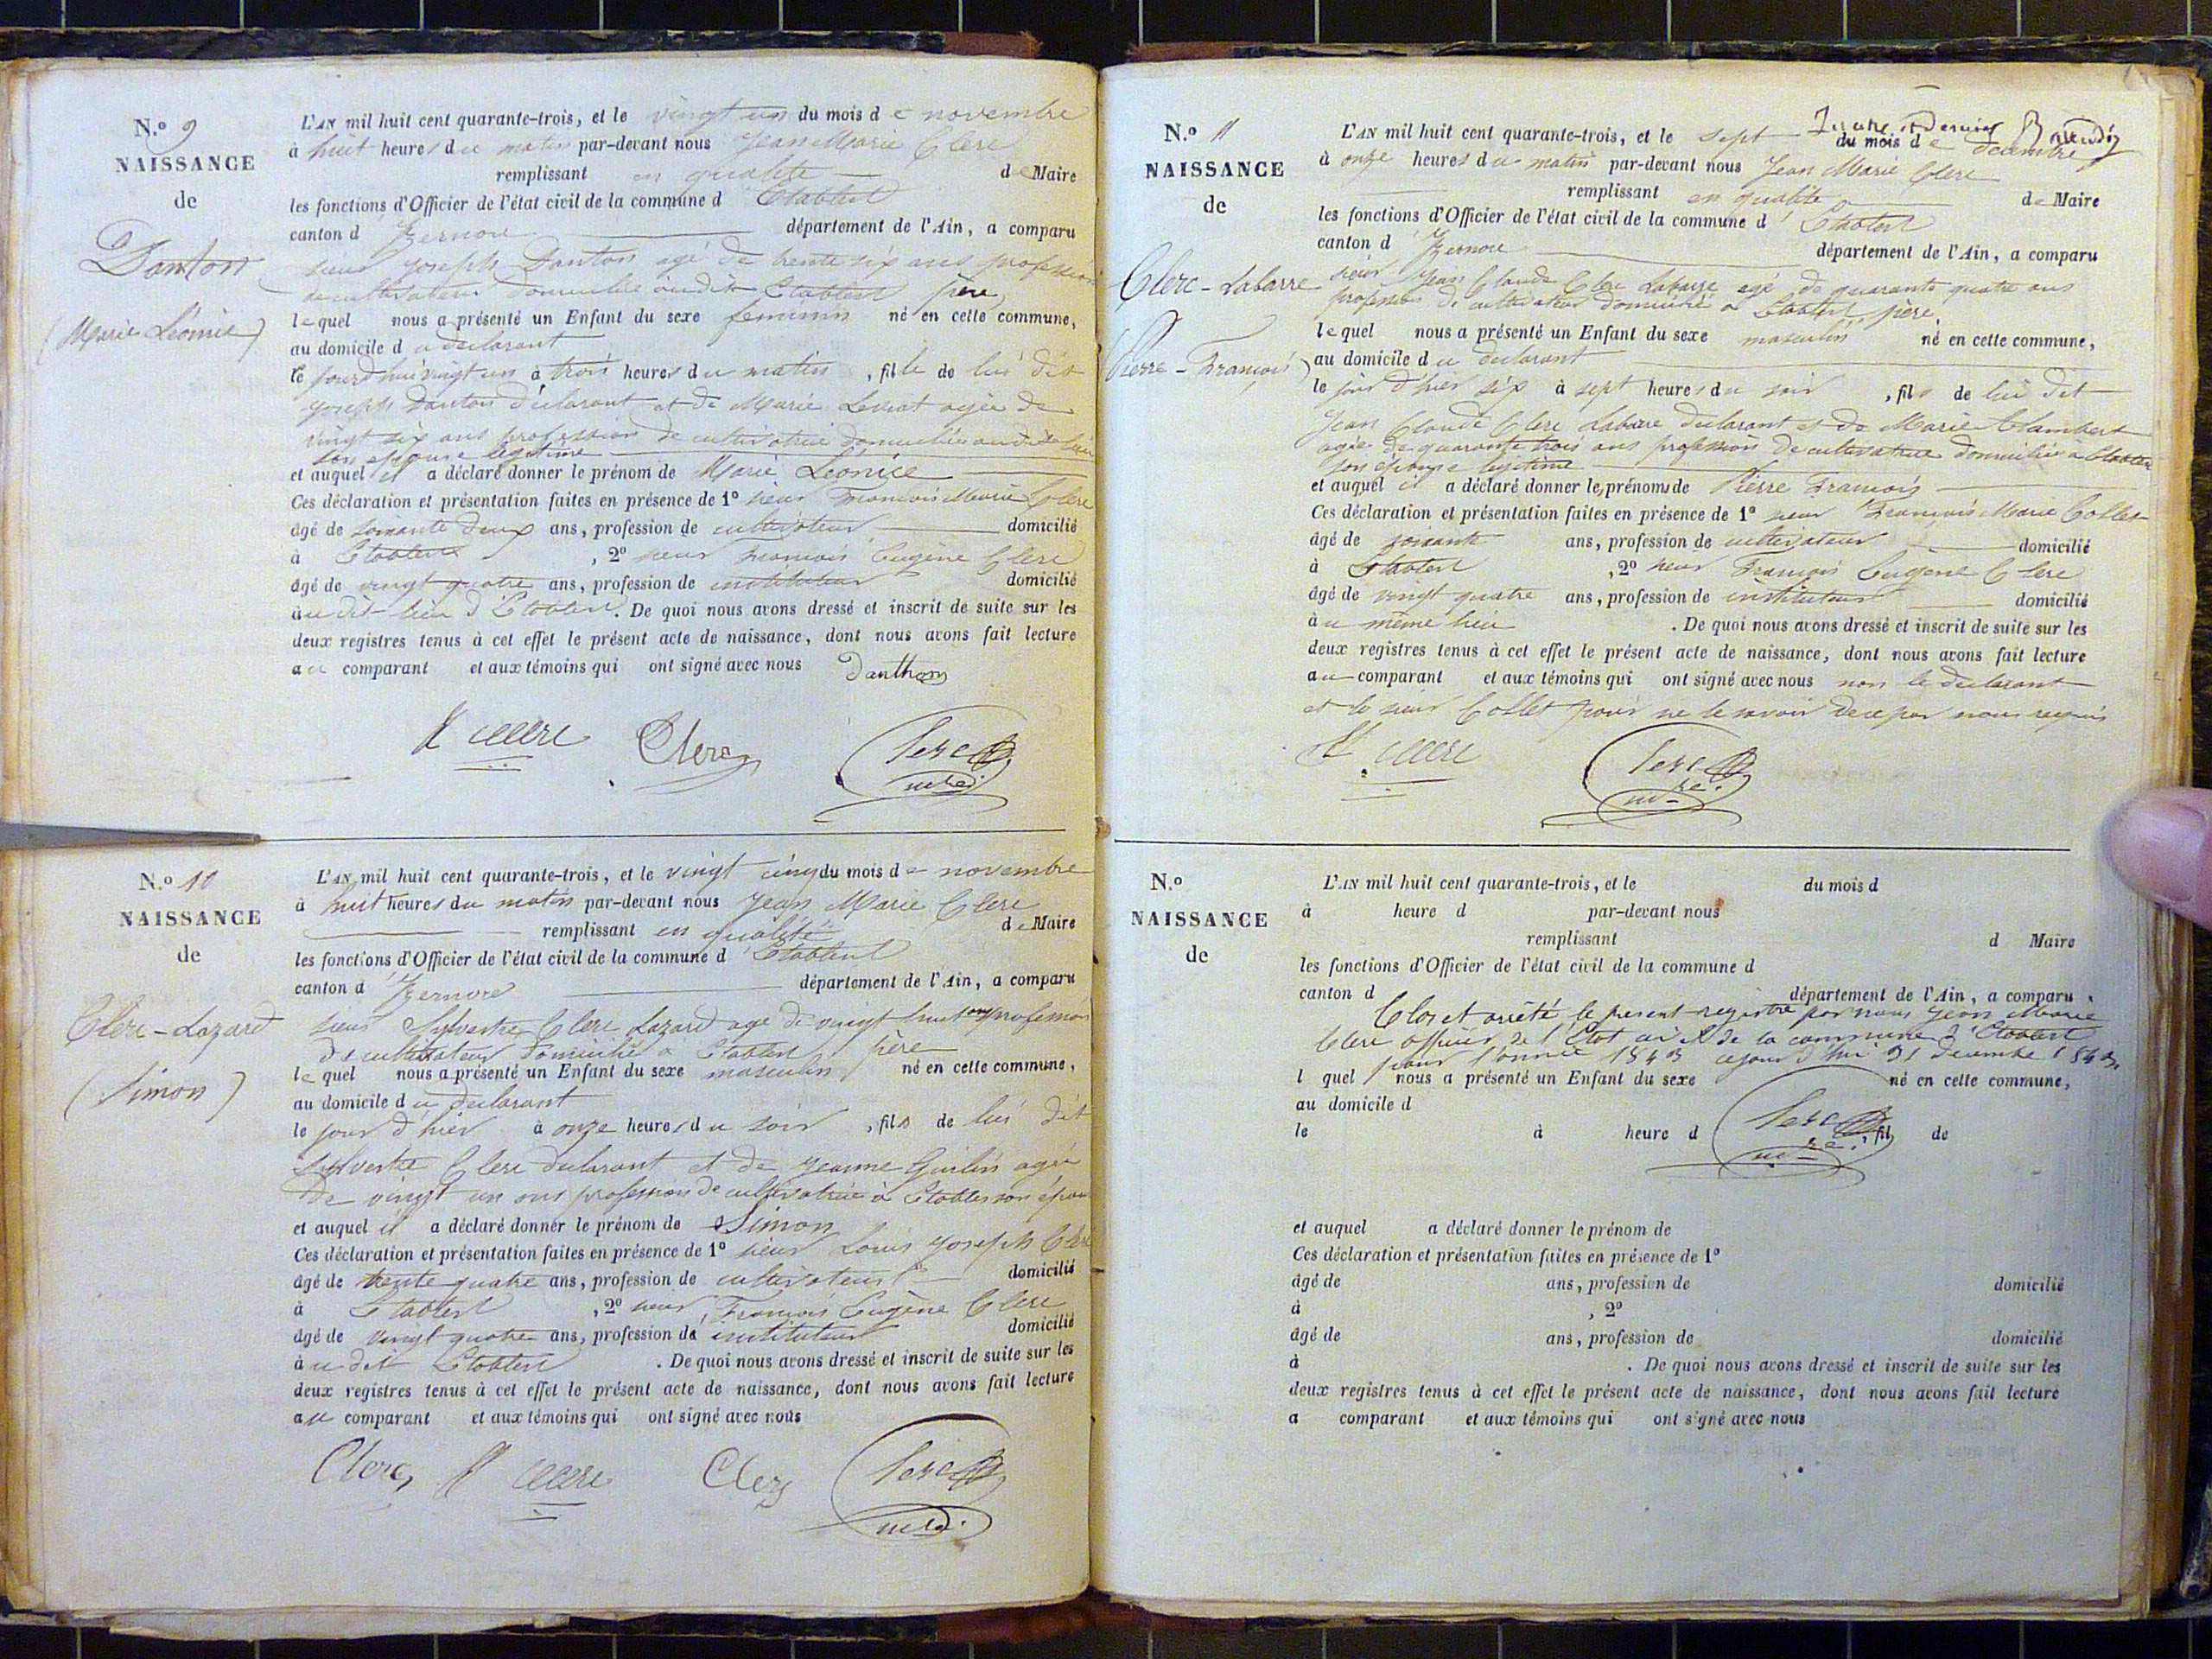 N.º 9
NAISSANCE
de
Danton
(Marie Léonice)
L'AN mil huit cent quarante-trois, et le vingt un du mois de novembre
à huit heures du matin par-devant nous Jean Marie Clerc
remplissant en qualité de Maire
les fonctions d'Officier de l'état civil de la commune d'Etables
canton d'Izernore département de l'Ain, a comparu
sieur Joseph Danton agé de trente six ans profession
de cultivateur domicilié audit Etables père
lequel nous a présenté un Enfant du sexe feminin né en cette commune,
au domicile du declarant
le jourd'hui vingt un à trois heures du matin, fille de lui dit
Joseph Danton déclarant et de Marie Levrat agée de
vingt six ans profession de cultivatrice domiciliée audit lieu
son epouse légitime
et auquel il a déclaré donner le prénom de Marie Léonice
Ces déclaration et présentation faites en présence de 1º sieur François Marie Clerc
âgé de soixante deux ans, profession de cultivateur domicilié
à Etables, 2º sieur François Eugène Clerc
âgé de vingt quatre ans, profession de instituteur domicilié
au dit lieu d'Etables. De quoi nous avons dressé et inscrit de suite sur les
deux registres tenus à cet effet le présent acte de naissance, dont nous avons fait lecture
au comparant et aux témoins qui ont signé avec nous Danthon
Clerc Clerc
N.º 10
NAISSANCE
de
Clerc-Lazard
(Simon)
L'AN mil huit cent quarante-trois, et le vingt cinq du mois de novembre
à huit heures du matin par-devant nous Jean Marie Clerc
remplissant en qualité de Maire
les fonctions d'Officier de l'état civil de la commune d'Etables
canton d'Izernore département de l'Ain, a comparu
sieur Sylvestre Clerc Lazard agé de vingt huit ans profession
de cultivateur domicilié à Etables père
lequel nous a présenté un Enfant du sexe masculin né en cette commune,
au domicile du declarant
le jour d'hier à onze heures du soir, fils de lui dit
Sylvestre Clerc declarant et de Jeanne agée
de vingt un ans profession de cultivatrice à Etables son épouse
et auquel il a déclaré donner le prénom de Simon
Ces déclaration et présentation faites en présence de 1º sieur Louis Joseph Clerc
âgé de trente quatre ans, profession de cultivateur domicilié
à Etables, 2º sieur François Eugène Clerc
âgé de vingt quatre ans, profession de instituteur domicilié
au dit Etables. De quoi nous avons dressé et inscrit de suite sur les
deux registres tenus à cet effet le présent acte de naissance, dont nous avons fait lecture
au comparant et aux témoins qui ont signé avec nous
Clerc Clerc Clerc
N.º 11
NAISSANCE
de
Clerc-Labarre
Pierre-François
L'AN mil huit cent quarante-trois, et le sept du mois de decembre
à onze heures du matin par-devant nous Jean Marie Clerc
remplissant en qualité de Maire
les fonctions d'Officier de l'état civil de la commune d'Etables
canton d'Izernore département de l'Ain, a comparu
sieur Jean Claude Clerc Labarre agé de quarante quatre ans
profession de cultivateur domicilié à Etables père
lequel nous a présenté un Enfant du sexe masculin né en cette commune,
au domicile du declarant
le jour d'hier six à sept heures du soir, fils de lui dit
Jean Claude Clerc Labarre declarant et de Marie
agée de quarante trois ans profession de cultivatrice domiciliée à Etables
son épouse legitime
et auquel il a déclaré donner les prénoms de Pierre François
Ces déclaration et présentation faites en présence de 1º sieur François Marie Collet
âgé de soixante ans, profession de cultivateur domicilié
à Etables, 2º sieur François Eugène Clerc
âgé de vingt quatre ans, profession de instituteur domicilié
au même lieu. De quoi nous avons dressé et inscrit de suite sur les
deux registres tenus à cet effet le présent acte de naissance, dont nous avons fait lecture
au comparant et aux témoins qui ont signé avec nous non le declarant
et le sieur Collet pour ne le savoir de ce par nous requis
Clerc
N.º
NAISSANCE
de
L'AN mil huit cent quarante-trois, et le du mois d
à heure d par-devant nous
remplissant d Maire
les fonctions d'Officier de l'état civil de la commune d
canton d département de l'Ain, a comparu
Clos et arrêté le present registre par nous Jean Marie
Clerc officier de l'Etat civil de la commune d'Etables
pour l'année 1843 cejourd'hui 31 decembre 1843
l quel nous a présenté un Enfant du sexe né en cette commune,
au domicile d
le à heure d , fil de
et auquel a déclaré donner le prénom de
Ces déclaration et présentation faites en présence de 1º
âgé de ans, profession de domicilié
à , 2º
âgé de ans, profession de domicilié
à . De quoi nous avons dressé et inscrit de suite sur les
deux registres tenus à cet effet le présent acte de naissance, dont nous avons fait lecture
a comparant et aux témoins qui ont signé avec nous